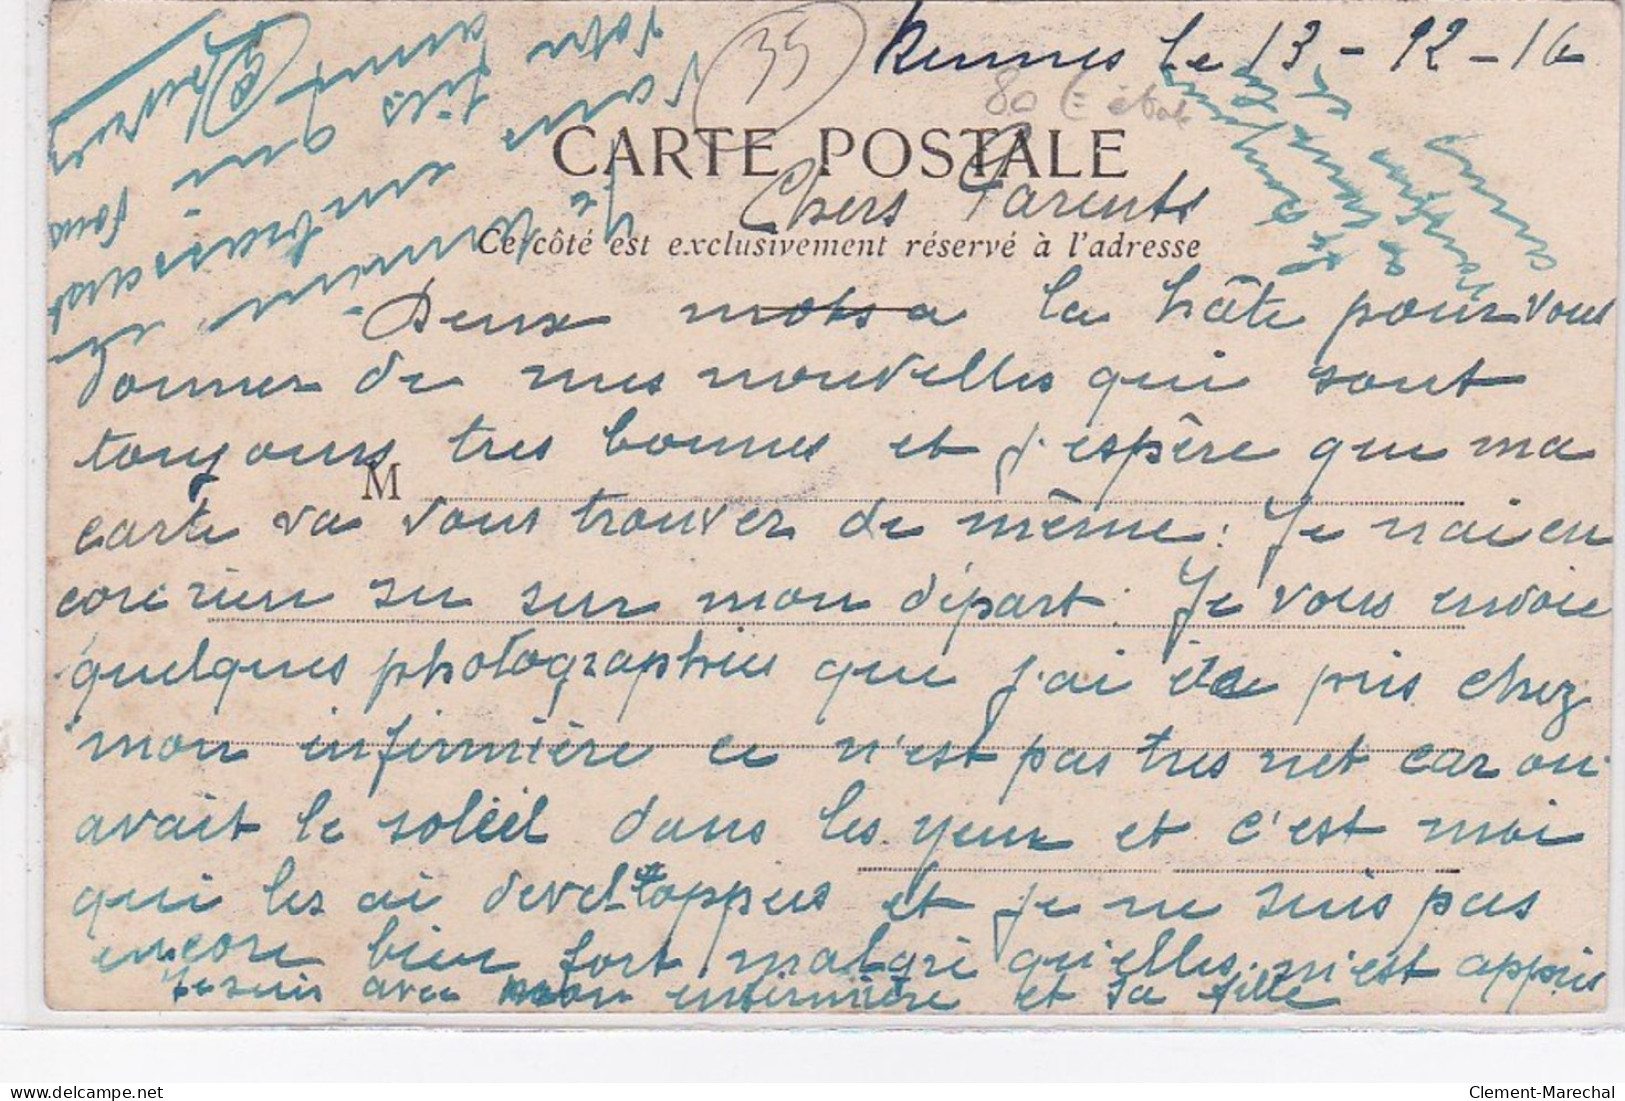 35
Rennes le 13 - 12 - 16
CARTE POSTALE
Chers Parents
Ce côté est exclusivement réservé à l'adresse
Deux mots a la hâte pour vous
donner de mes nouvelles qui sont
toujours tres bonnes et j'espère que ma
M
carte va vous trouver de même. Je n'ai en
core rien su sur mon départ. Je vous envoie
quelques photographies que j'ai pris chez
mon infirmière ce n'est pas tres net car on
avait le soleil dans les yeux et c'est moi
qui les ai developpees et je ne suis pas
encore bien fort malgré qu'elles m'est appris
Je suis avec mon infirmière et sa fille
Je
termine en
vous embrassant
votre fils qui vous
aime
Clement-Marechal